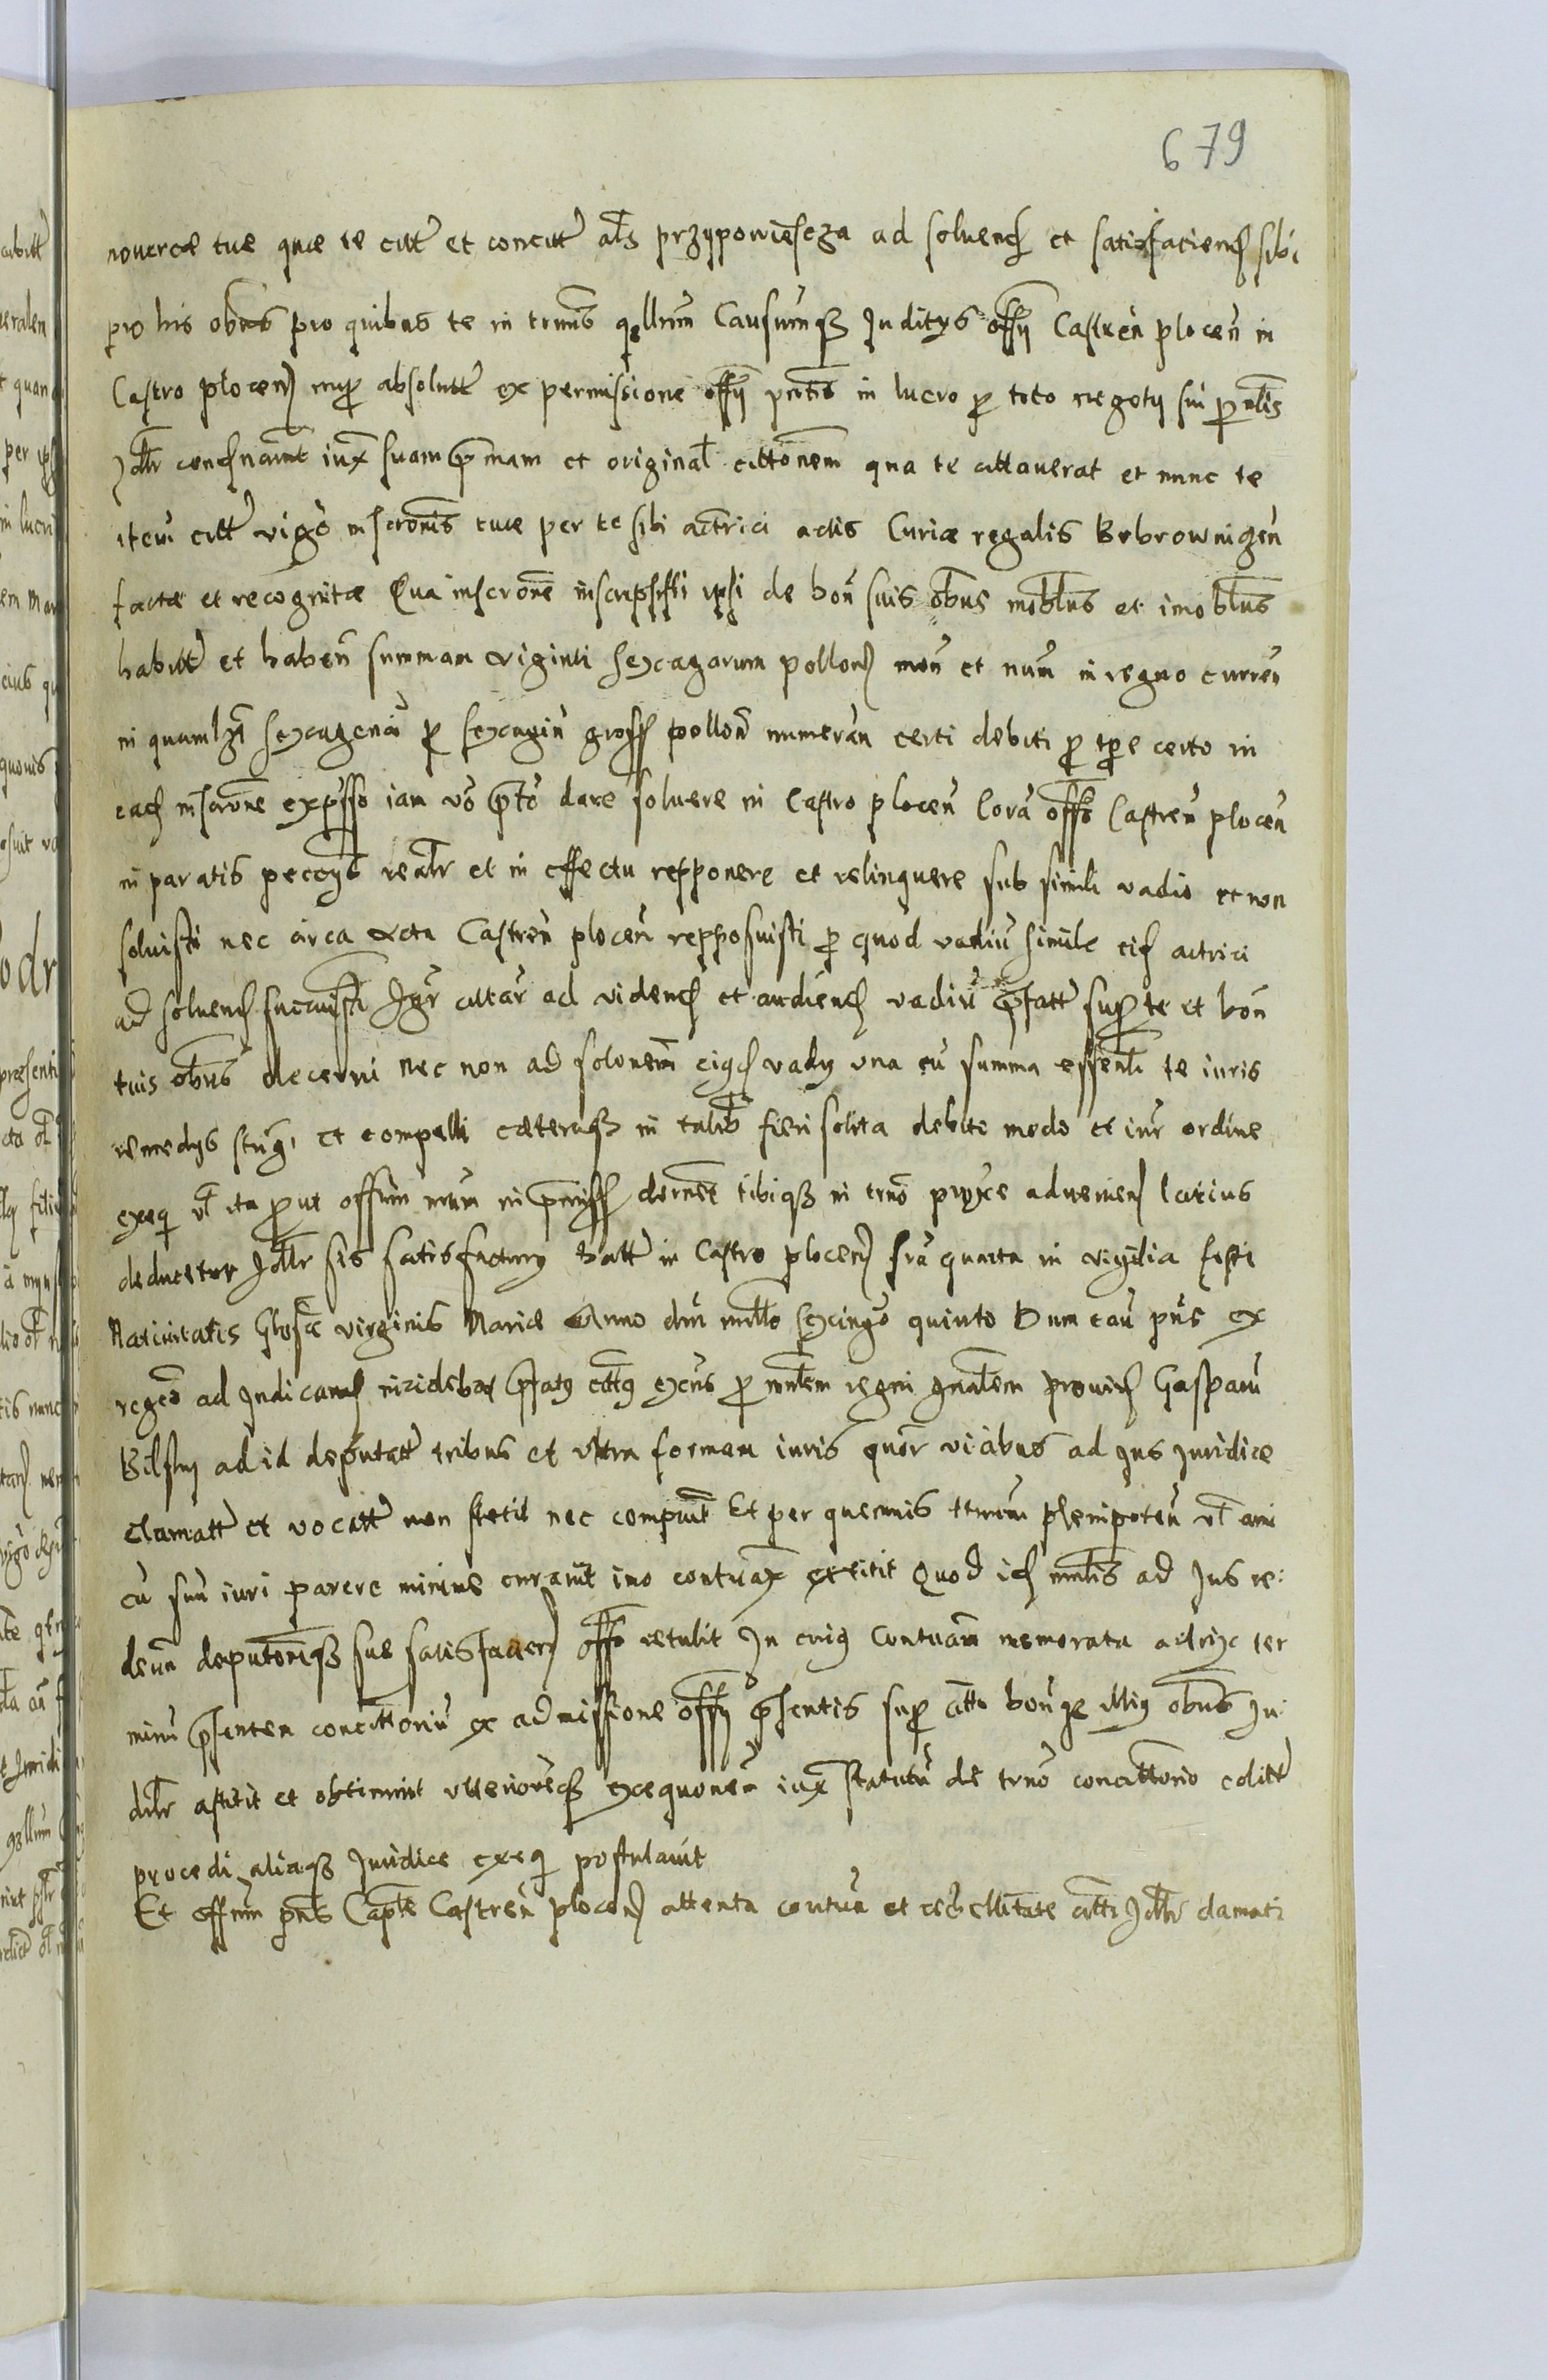 679
novercæ tuæ quæ te citt et concitt als przypowieszcza ad soluend et satisfaciend sibi
pro his obus pro quibus te in trmis qllrum Causarumq Juditys offy Castren plocen in
Castro plocen nup absolutt ex permissione offy pntis in lucro p toto negoty sui pnlis
Jdlr condnauit iux suam pmam et original cittonem qua te cittauerat et nunc te
iteru citt vigo inscronis tuæ per te sibi actrici actis Curiæ regalis Bobrownigen
factæ et recognitæ Qua inscrone inscripsisti ipsi de bon suis obus mobblus et imobblus
habitt et haben summam viginti sexagarum pollon mon et num in regno curren
in quamlzt sexagena p sexagin gross pollon numeran certi debiti p tpe certo in
ead inscrone expsso iam vo pto dare soluere in Castro plocen Cora offo Castren plocen
in paratis peccys realr et in effectu repponere et relinquere sub simili vadio et non
soluisti nec circa Acta Castren plocen repposuisti p quod vadiu simile eid actrici
ad soluend succubuisti Igr cittar ad videnď et audiend vadiu pfatt sup te et bon
tuis obus decerni nec non ad solonem eiqd vady una cu summa essenli te iuris
remedys string et compelli cæteraq in talib fieri solita debito modo et iur ordine
exeq vl ita put offium nrum in pmiss dernet tibiq in trno proxe advenien latius
deducetur Jdlr sis satisfacturg Datt in Castro plocen fra quarta in vigilia festi
Natiuitatis Glosæ virginis Mariæ Anno dni millo sexingo quinto Dum cau pns ex
regro ad Judicand incideba pfatg cittg excus p mnlem regni gnalem prouid Gasparu
Bilsky ad id deputatt tribus et ultra formam iuris quor vicibus ad Jus Juridice
clamatt et vocatt non stetit nec comparuit Et per quemuis trmum plenipoten vl ami
cu suu iuri parere minime curauit imo contuax extitit Quod id mnlis ad Jus re:
deun deputoniq suæ satisfacien offo retulit In cuig contuam memorata actrix ter
minu psentem concittoriu ex admissione offy psentis sup citto bonqe illig obus Ju:
dilr astitit et obtinuit vlterioremq exequonem iux statutu de trno concittorio editt
procedi aliaq Juridice exeq postulauit
Et offium pns Captle Castren plocen attenta contua et rebellitate citti Jdlr clamati